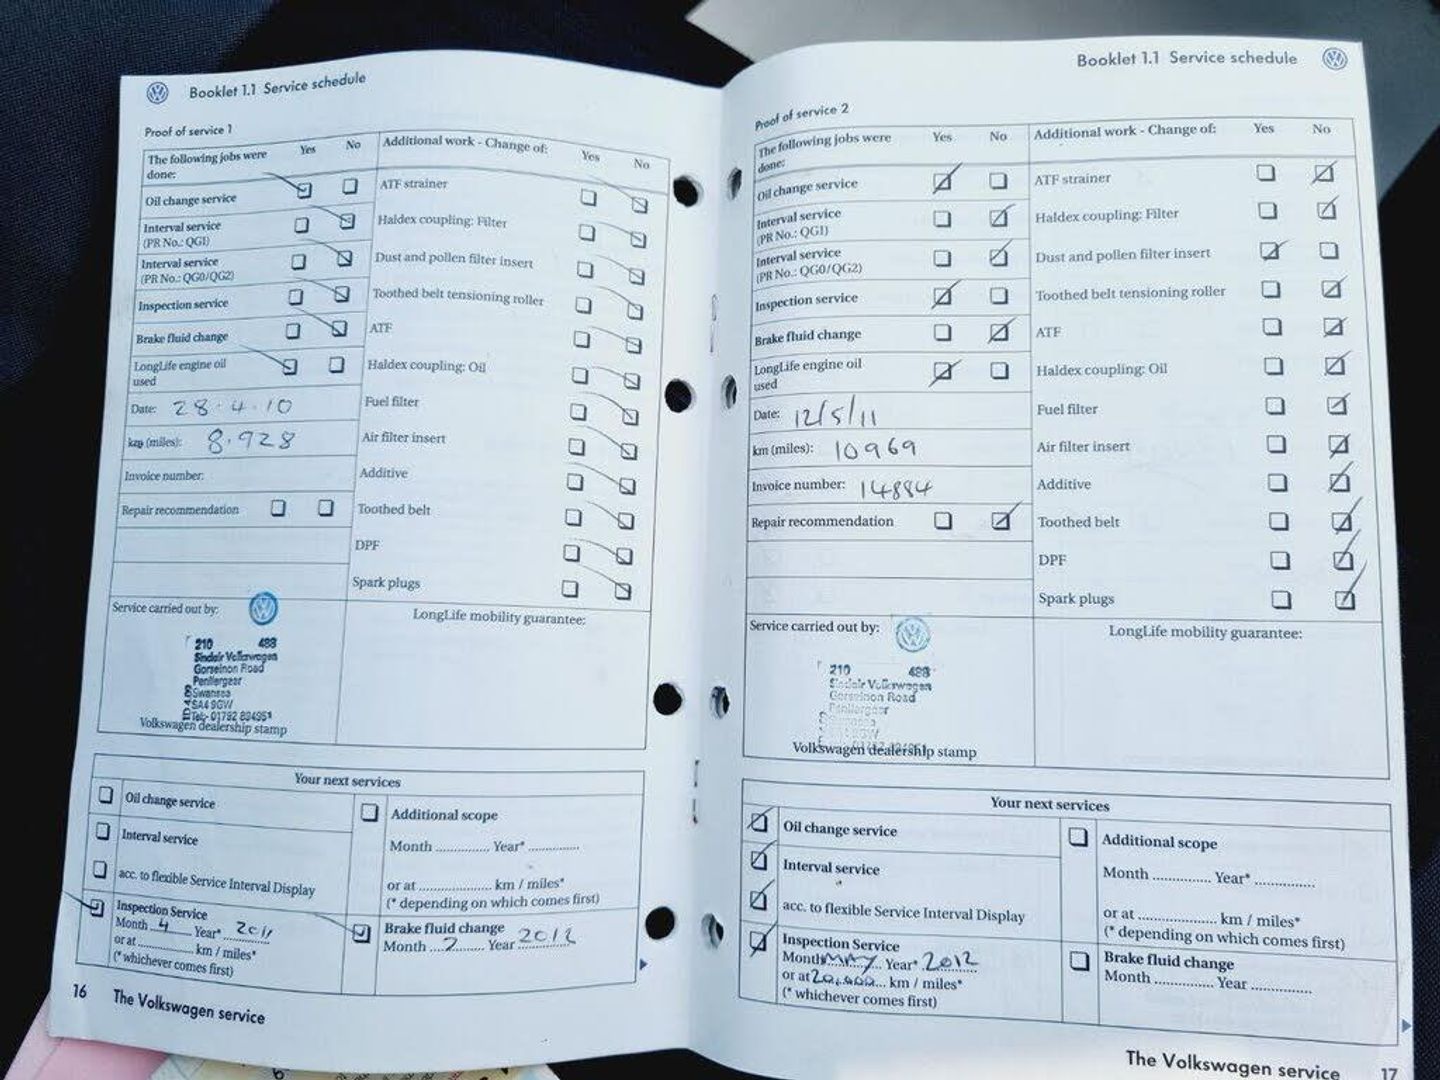 Booklet 1.1 Service schedule
Proof of service 1
The following jobs were done: Yes No
Oil change service
Interval service
(PR No.: QG1)
Interval service
(PR No.: QG0/QG2)
Inspection service
Brake fluid change
LongLife engine oil
used
Date: 28.4.10
km (miles): 8.928
Invoice number:
Repair recommendation
Additional work - Change of: Yes No
ATF strainer
Haldex coupling: Filter
Dust and pollen filter insert
Toothed belt tensioning roller
ATF
Haldex coupling: Oil
Fuel filter
Air filter insert
Additive
Toothed belt
DPF
Spark plugs
Service carried out by:
210 488
Sinclair Volkswagen
Gorseinon Road
Penllergaer
Swansea
SA4 9GW
Volkswagen dealership stamp
LongLife mobility guarantee:
Your next services
Oil change service
Interval service
acc. to flexible Service Interval Display
Inspection Service
Month 4 Year* 2011
or at .............. km / miles*
(* whichever comes first)
Additional scope
Month .............. Year* .............
or at ................... km / miles*
(* depending on which comes first)
Brake fluid change
Month 2 Year 2012
16 The Volkswagen service
Booklet 1.1 Service schedule
Proof of service 2
The following jobs were
done: Yes No
Oil change service
Interval service
(PR No.: QG1)
Interval service
(PR No.: QG0/QG2)
Inspection service
Brake fluid change
LongLife engine oil
used
Date: 12/5/11
km (miles): 10969
Invoice number: 14884
Repair recommendation
Additional work - Change of: Yes No
ATF strainer
Haldex coupling: Filter
Dust and pollen filter insert
Toothed belt tensioning roller
ATF
Haldex coupling: Oil
Fuel filter
Air filter insert
Additive
Toothed belt
DPF
Spark plugs
Service carried out by:
210 488
Sinclair Volkswagen
Gorseinon Road
Penllergaer
Volkswagen dealership stamp
LongLife mobility guarantee:
Your next services
Oil change service
Interval service
acc. to flexible Service Interval Display
Inspection Service
Month MAY Year* 2012
or at 20,000 km / miles*
(* whichever comes first)
Additional scope
Month .............. Year* ..............
or at .................... km / miles*
(* depending on which comes first)
Brake fluid change
Month .............. Year ..............
The Volkswagen service 17